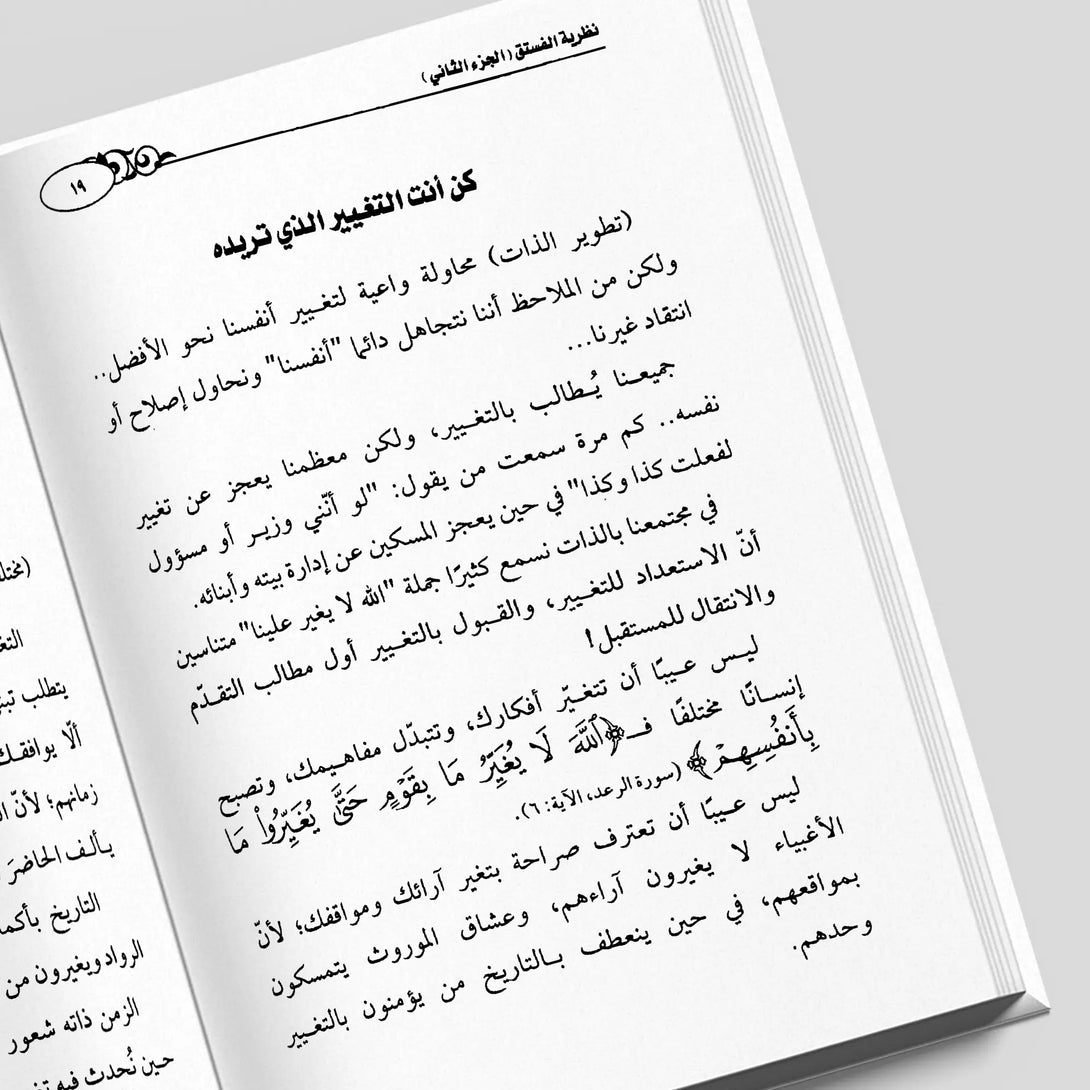 نظرية الفستق (الجزء الثاني)
١٩
كن أنت التغيير الذي تريده
(تطوير الذات) محاولة واعية لتغيير أنفسنا نحو الأفضل..
ولكن من الملاحظ أننا نتجاهل دائما "أنفسنا" ونحاول إصلاح أو
انتقاد غيرنا...
جميعنا يُطالب بالتغيير، ولكن معظمنا يعجز عن تغيير
نفسه.. كم مرة سمعت من يقول: "لو أنّني وزير أو مسؤول
لفعلت كذا وكذا" في حين يعجز المسكين عن إدارة بيته وأبنائه.
في مجتمعنا بالذات نسمع كثيرًا جملة "الله لا يغير علينا" متناسين
أنّ الاستعداد للتغيير، والقبول بالتغيير أول مطالب التقدّم
والانتقال للمستقبل!
ليس عيبًا أن تتغيّر أفكارك، وتتبدّل مفاهيمك، وتصبح
إنسانًا مختلفًا فـ﴿ٱللَّهَ لَا يُغَيِّرُ مَا بِقَوْمٍ حَتَّىٰ يُغَيِّرُوا۟ مَا
بِأَنفُسِهِمْ﴾ (سورة الرعد، الآية: ٦).
ليس عيبًا أن تعترف صراحة بتغير آرائك ومواقفك؛ لأنّ
الأغبياء لا يغيرون آراءهم، وعشاق الموروث يتمسكون
بمواقعهم، في حين ينعطف بالتاريخ من يؤمنون بالتغيير
وحدهم.
يتطلب
ألّا يوافقك
زمانهم؛ لأنّ
يألف الحاضرَ
التاريخ بأكمله
الرواد ويغيرون من
الزمن ذاته شعور
حين نُحدث فيه